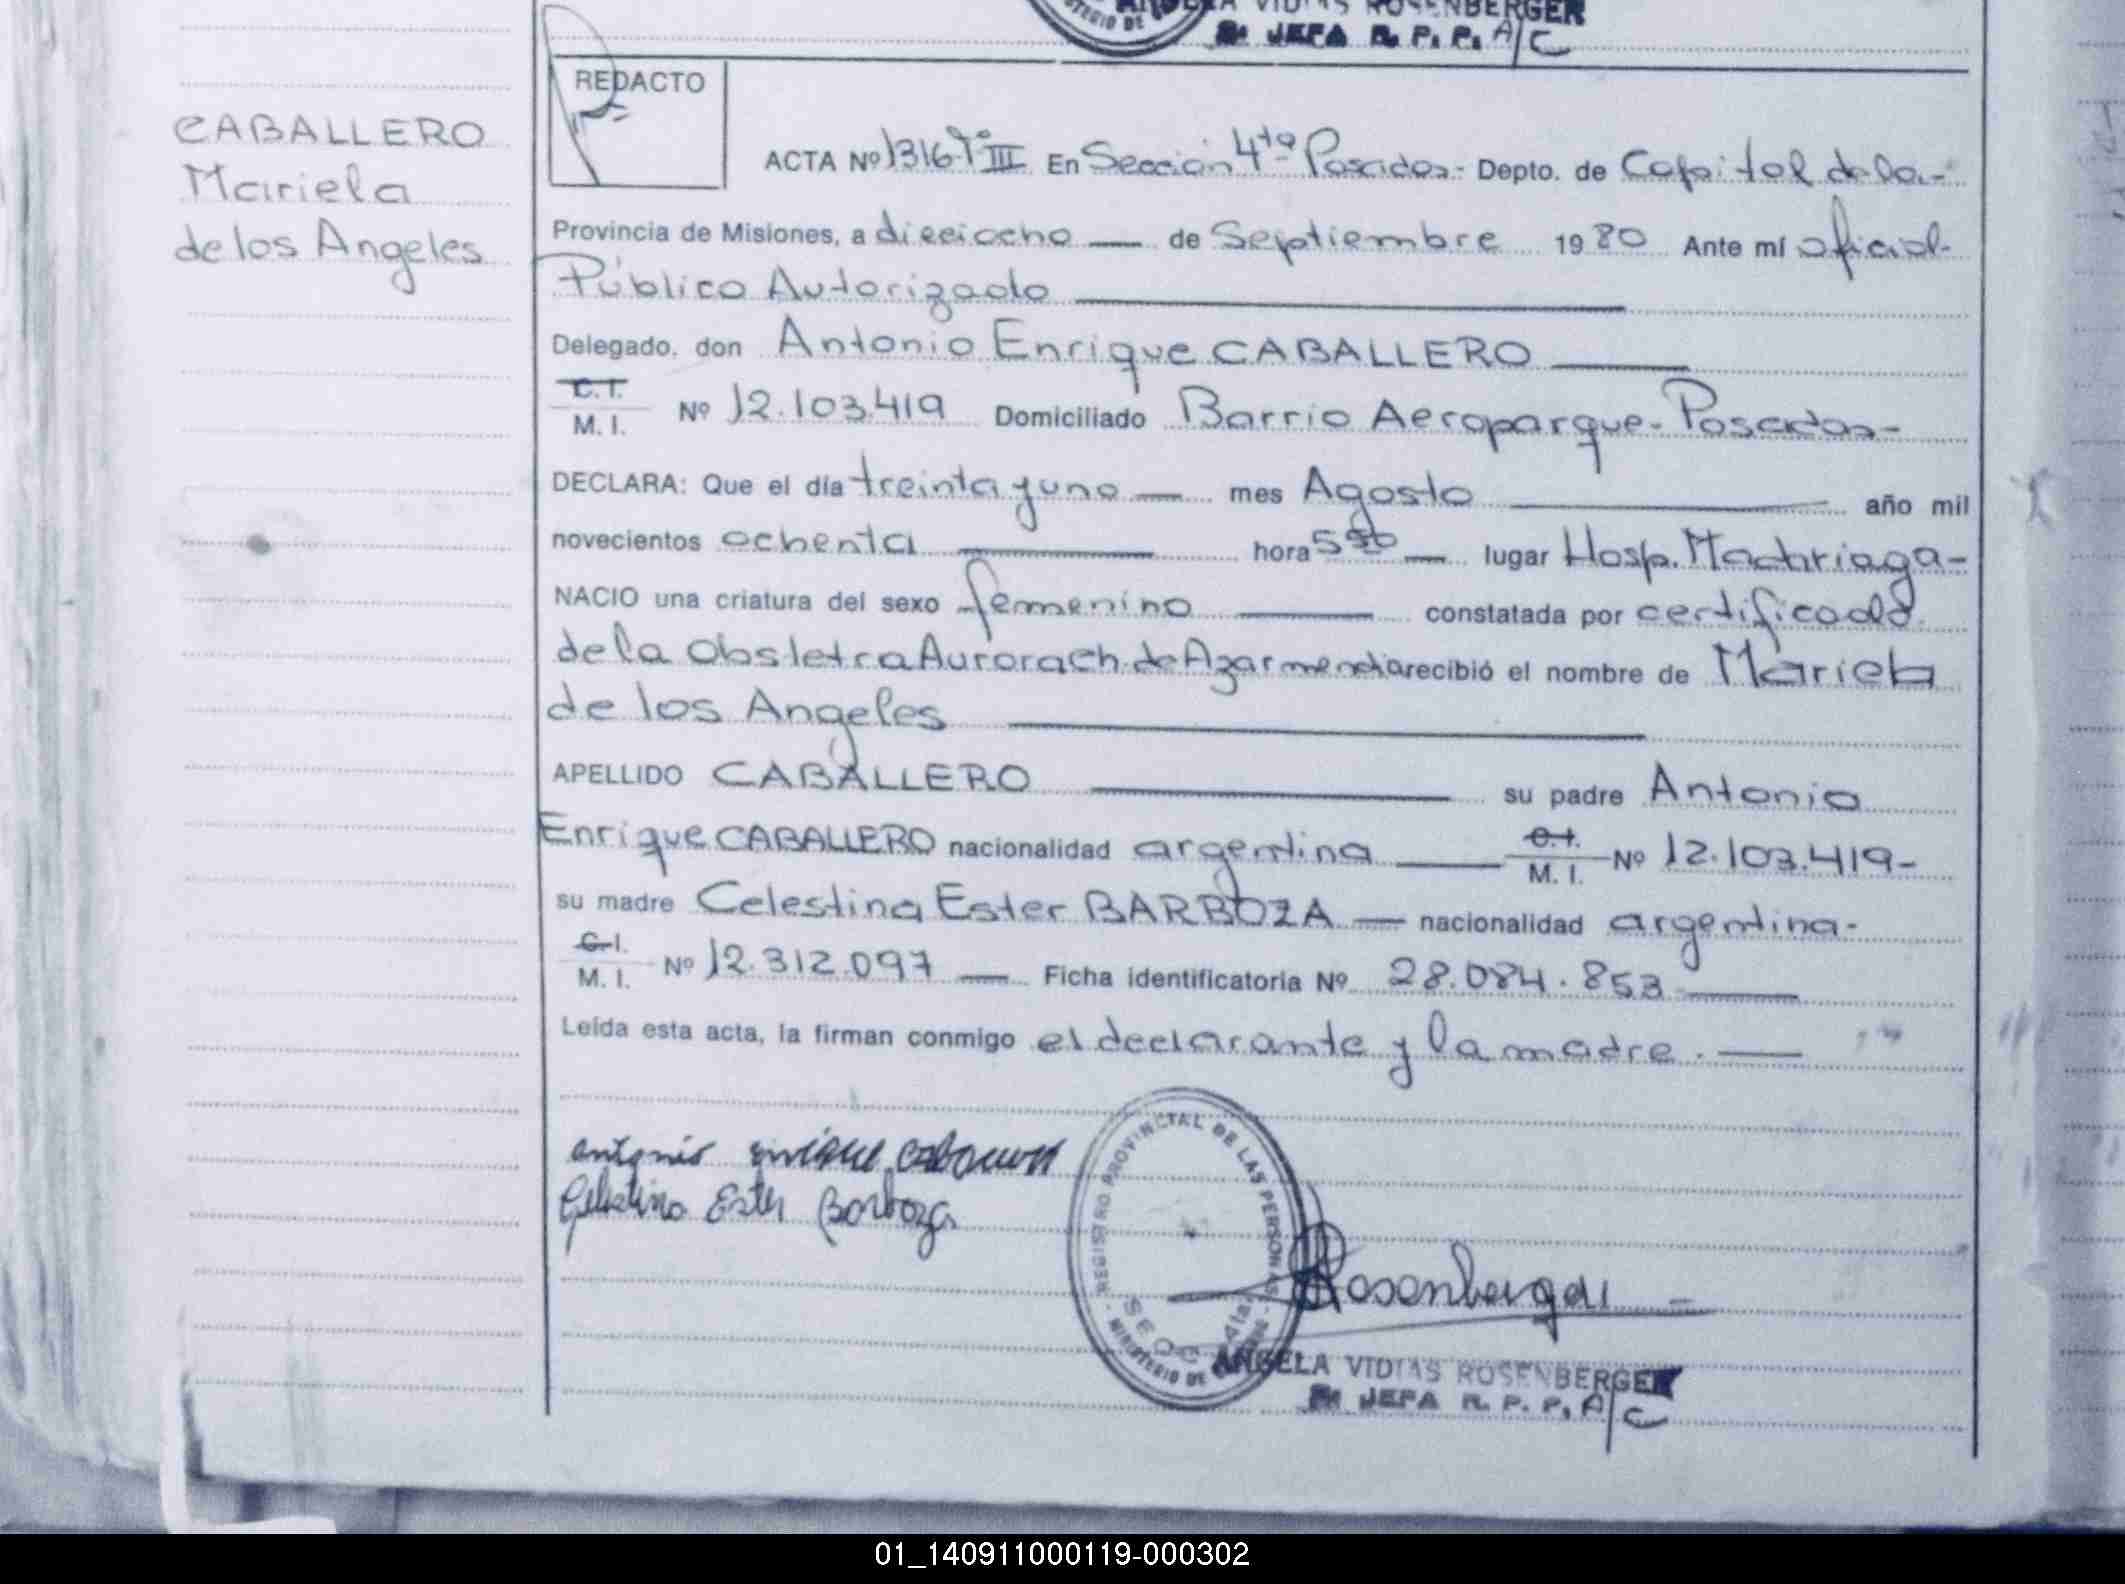 ANGELA VIDIAS ROSENBERGER
MINISTERIO DE
JEFA R. P. P. A/C
REDACTO
CABALLERO
Mariela
de los Angeles
ACTA Nº 1316 Tº III En Sección 4ta Posadas - Depto. de Capital de la -
Provincia de Misiones, a dieciocho — de Septiembre 1980 Ante mí oficial -
Público Autorizado
Delegado, don Antonio Enrique CABALLERO
C. I.
M. I. Nº 12.103.419 Domiciliado Barrio Aeroparque - Posadas -
DECLARA: Que el día treinta y uno — mes Agosto — año mil
novecientos ochenta — hora — lugar Hosp. Madariaga -
NACIO una criatura del sexo femenino — constatada por certificado
de la Obstetra Aurora Ch. de Azarmendia recibió el nombre de Mariela
de los Angeles
APELLIDO CABALLERO — su padre Antonio
Enrique CABALLERO nacionalidad argentina — C. I. M. I. Nº 12.103.419 -
su madre Celestina Ester BARBOZA — nacionalidad argentina -
C. I.
M. I. Nº 12.312.097 — Ficha identificatoria Nº 28.084.853
Leída esta acta, la firman conmigo el declarante y la madre. —
antonio enrique caballero
Celestina Ester Barboza
REGISTRO PROVINCIAL DE LAS PERSONAS
MINISTERIO DE
SECC. 4ta
Rosenberger
ANGELA VIDIAS ROSENBERGER
JEFA R. P. P. A/C
01_140911000119-000302